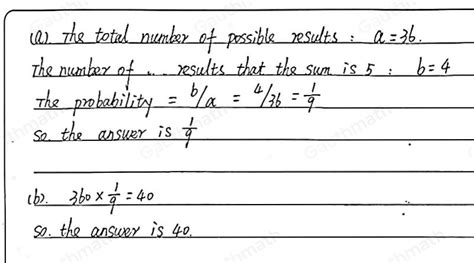 (a). The total number of possible results : a = 36.
The number of ... results that the sum is 5 : b = 4
The probability = b/a = 4/36 = 1/9
so the answer is 1/9
(b). 360 × 1/9 = 40
so. the answer is 40.